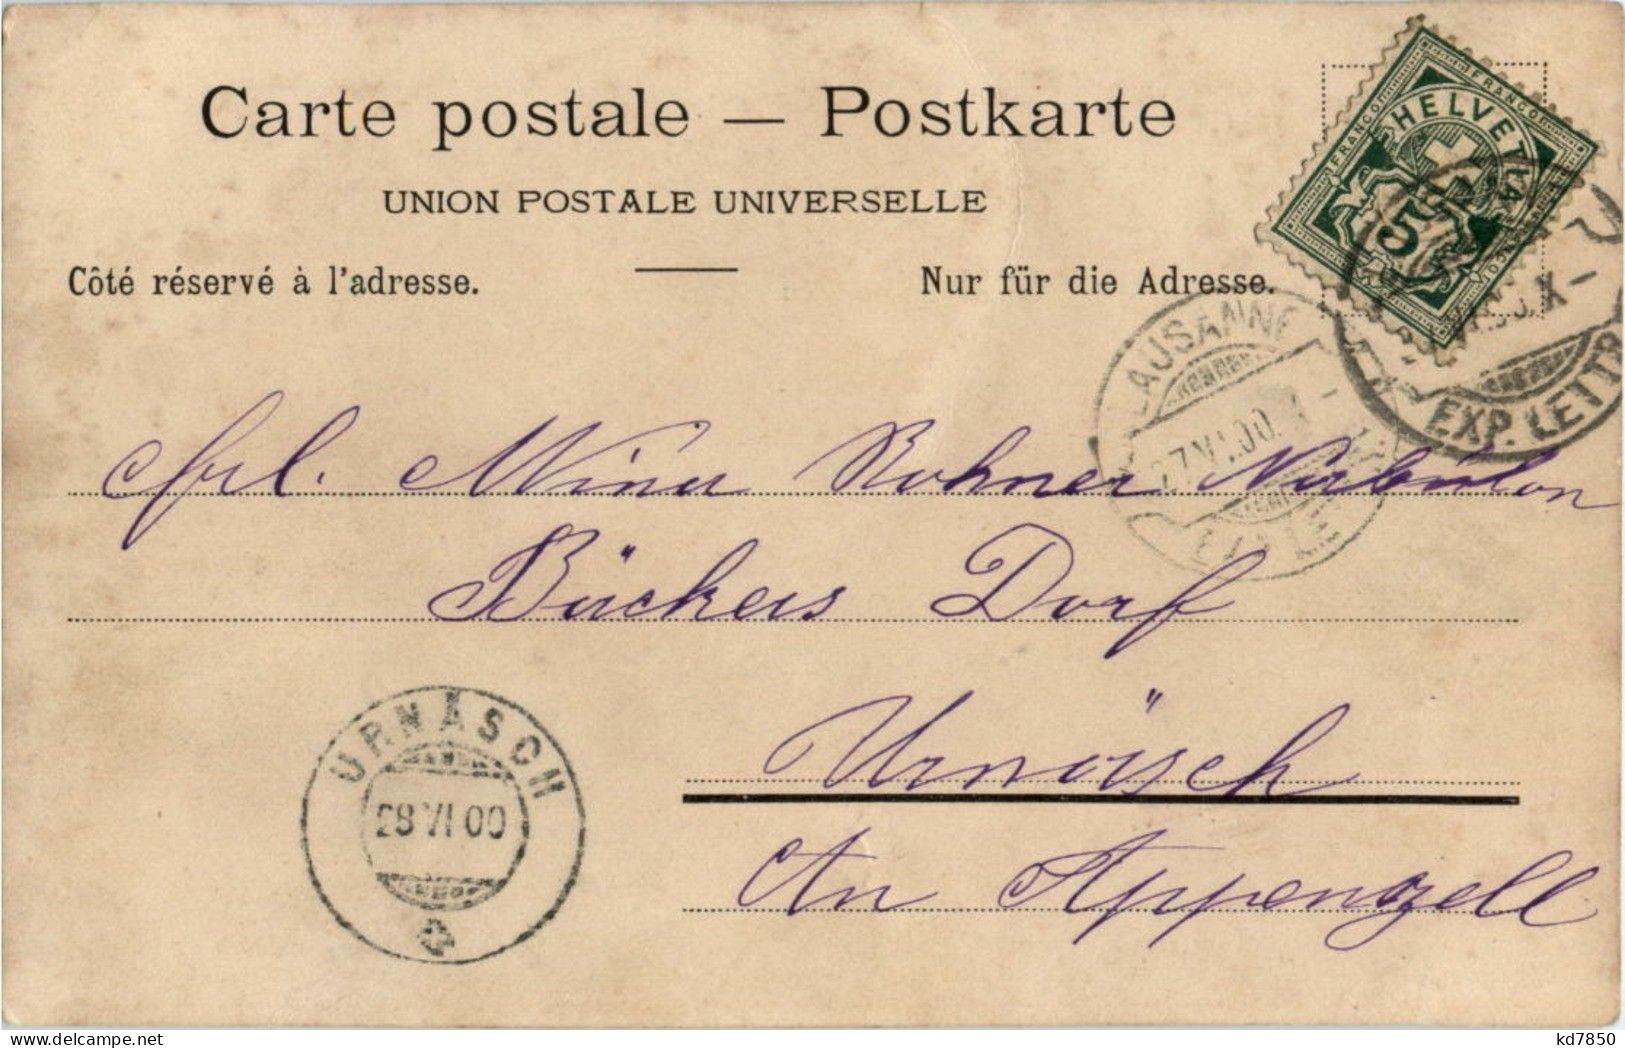 Carte postale — Postkarte
UNION POSTALE UNIVERSELLE
Côté réservé à l'adresse.
Nur für die Adresse.
FRANCO
FRANCO
HELVETIA
5
EXP. LETTR
LAUSANNE
27.VI.00
Frl. Mina Rohner
Bückers Dorf
Urnäsch
Ct. Appenzell
URNÄSCH
28 VI 00
kd7850